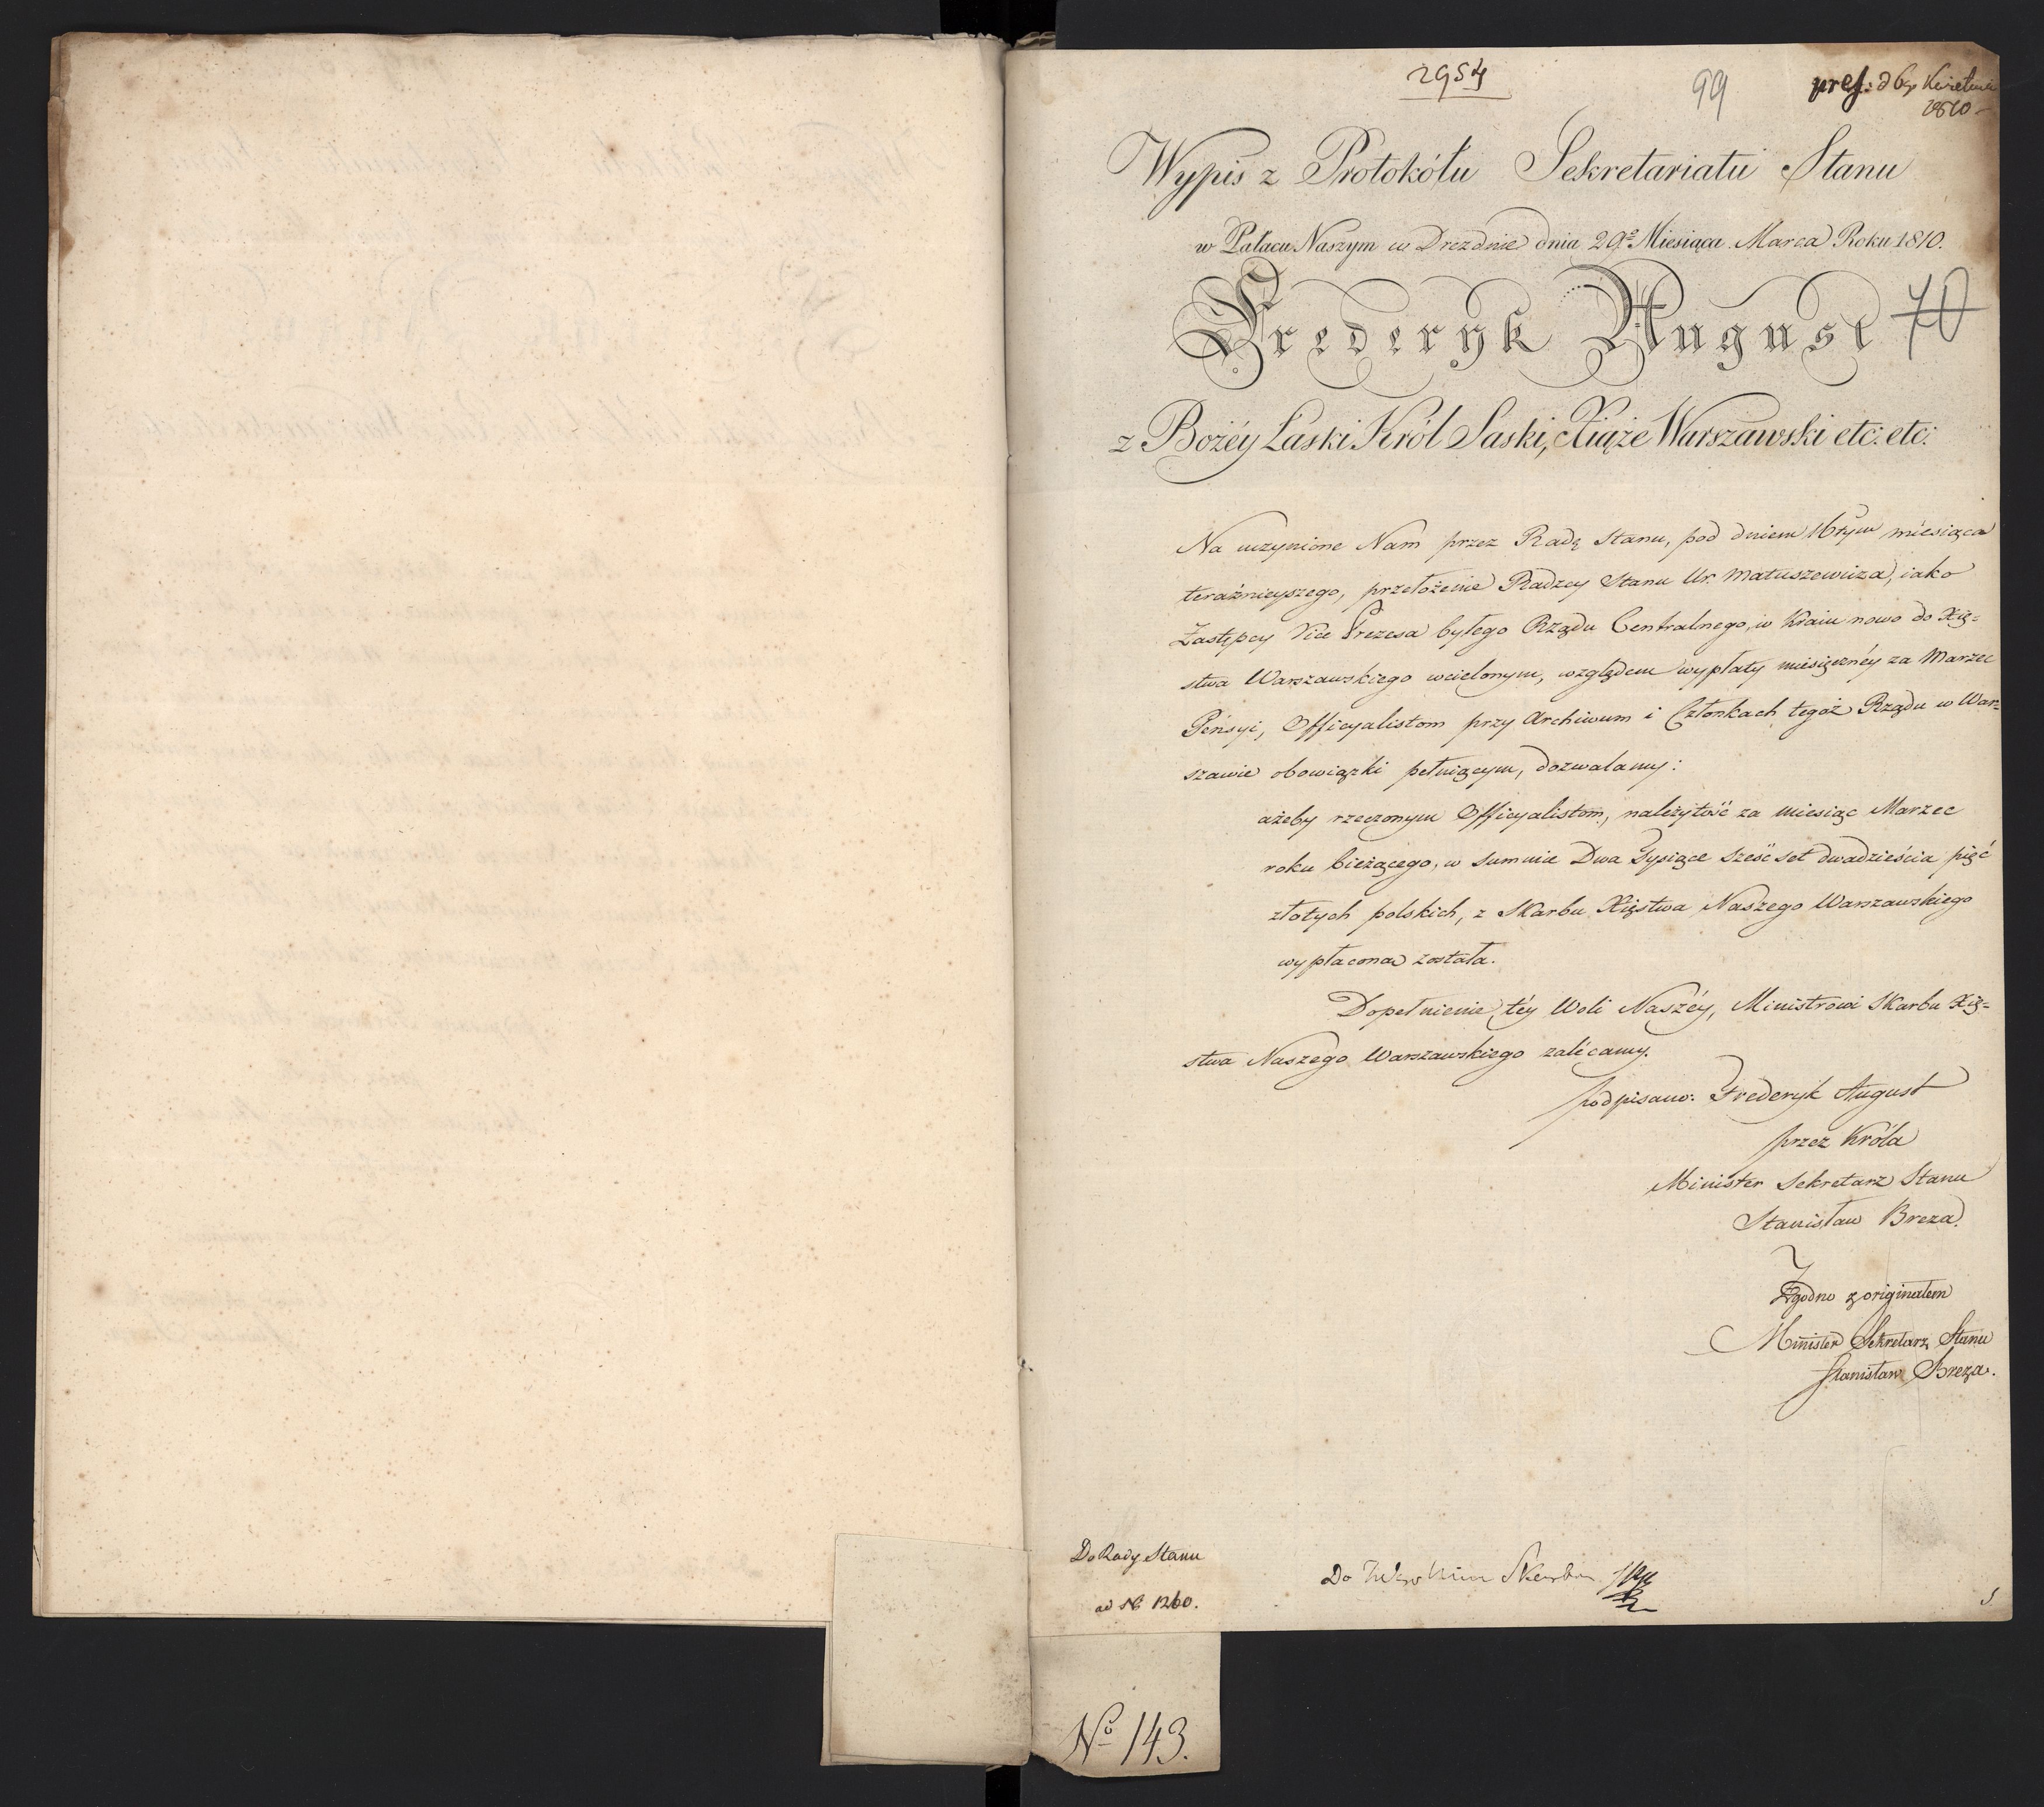 2954
99
pres: d 6go Kwietnia
1810
Wypis z Protokółu Sekretariatu Stanu
w Pałacu Naszym w Dreźnie dnia 29º Miesiąca Marca Roku 1810.
Frederyk August
70
z Bożéy Łaski Król Saski, Xiąże Warszawski etc: etc:
Na uczynione Nam przez Radę Stanu, pod dniem 16tym miesiąca
teraźnieyszego, przełożenie Radzcy Stanu Ur. Matuszewicza, iako
Zastępcy Vice Prezesa byłego Rządu Centralnego, w Kraiu nowo do Xię=
stwa Warszawskiego wcielonym, względem wypłaty miesięcznéy za Marzec
Pensyi, Officyalistom przy Archiwum i Członkach tegoż Rządu w War=
szawie obowiązki pełniącym, dozwalamy:
ażeby rzeczonym Officyalistom, należytość za miesiąc Marzec
roku bieżącego, w summie Dwa Tysiące sześć set dwadzieścia pięć
złotych polskich, z Skarbu Xięstwa Naszego Warszawskiego
wypłacona została.
Dopełnienie téy Woli Naszéy, Ministrowi Skarbu Xię=
stwa Naszego Warszawskiego zalécamy.
podpisano: Frederyk August
przez Króla
Minister Sekretarz Stanu
Stanisław Breza.
Zgodno z originałem
Minister Sekretarz Stanu
Stanisław Breza.
Do Rady Stanu
ad Nº 1260.
Do Skarbu
Nº 143.